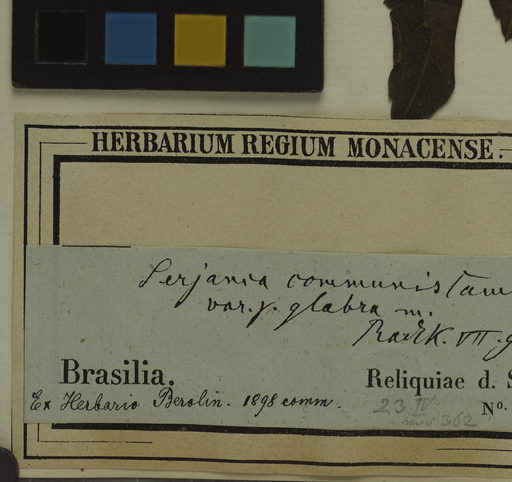 HERBARIUM REGIUM MONACENSE.
Serjania communis Cam
var. γ. glabra m.
Radlk. VII.
Brasilia.
Reliquiae d. S
Ex Herbario Berolin. 1898 comm.
23 IV
Nº. 362